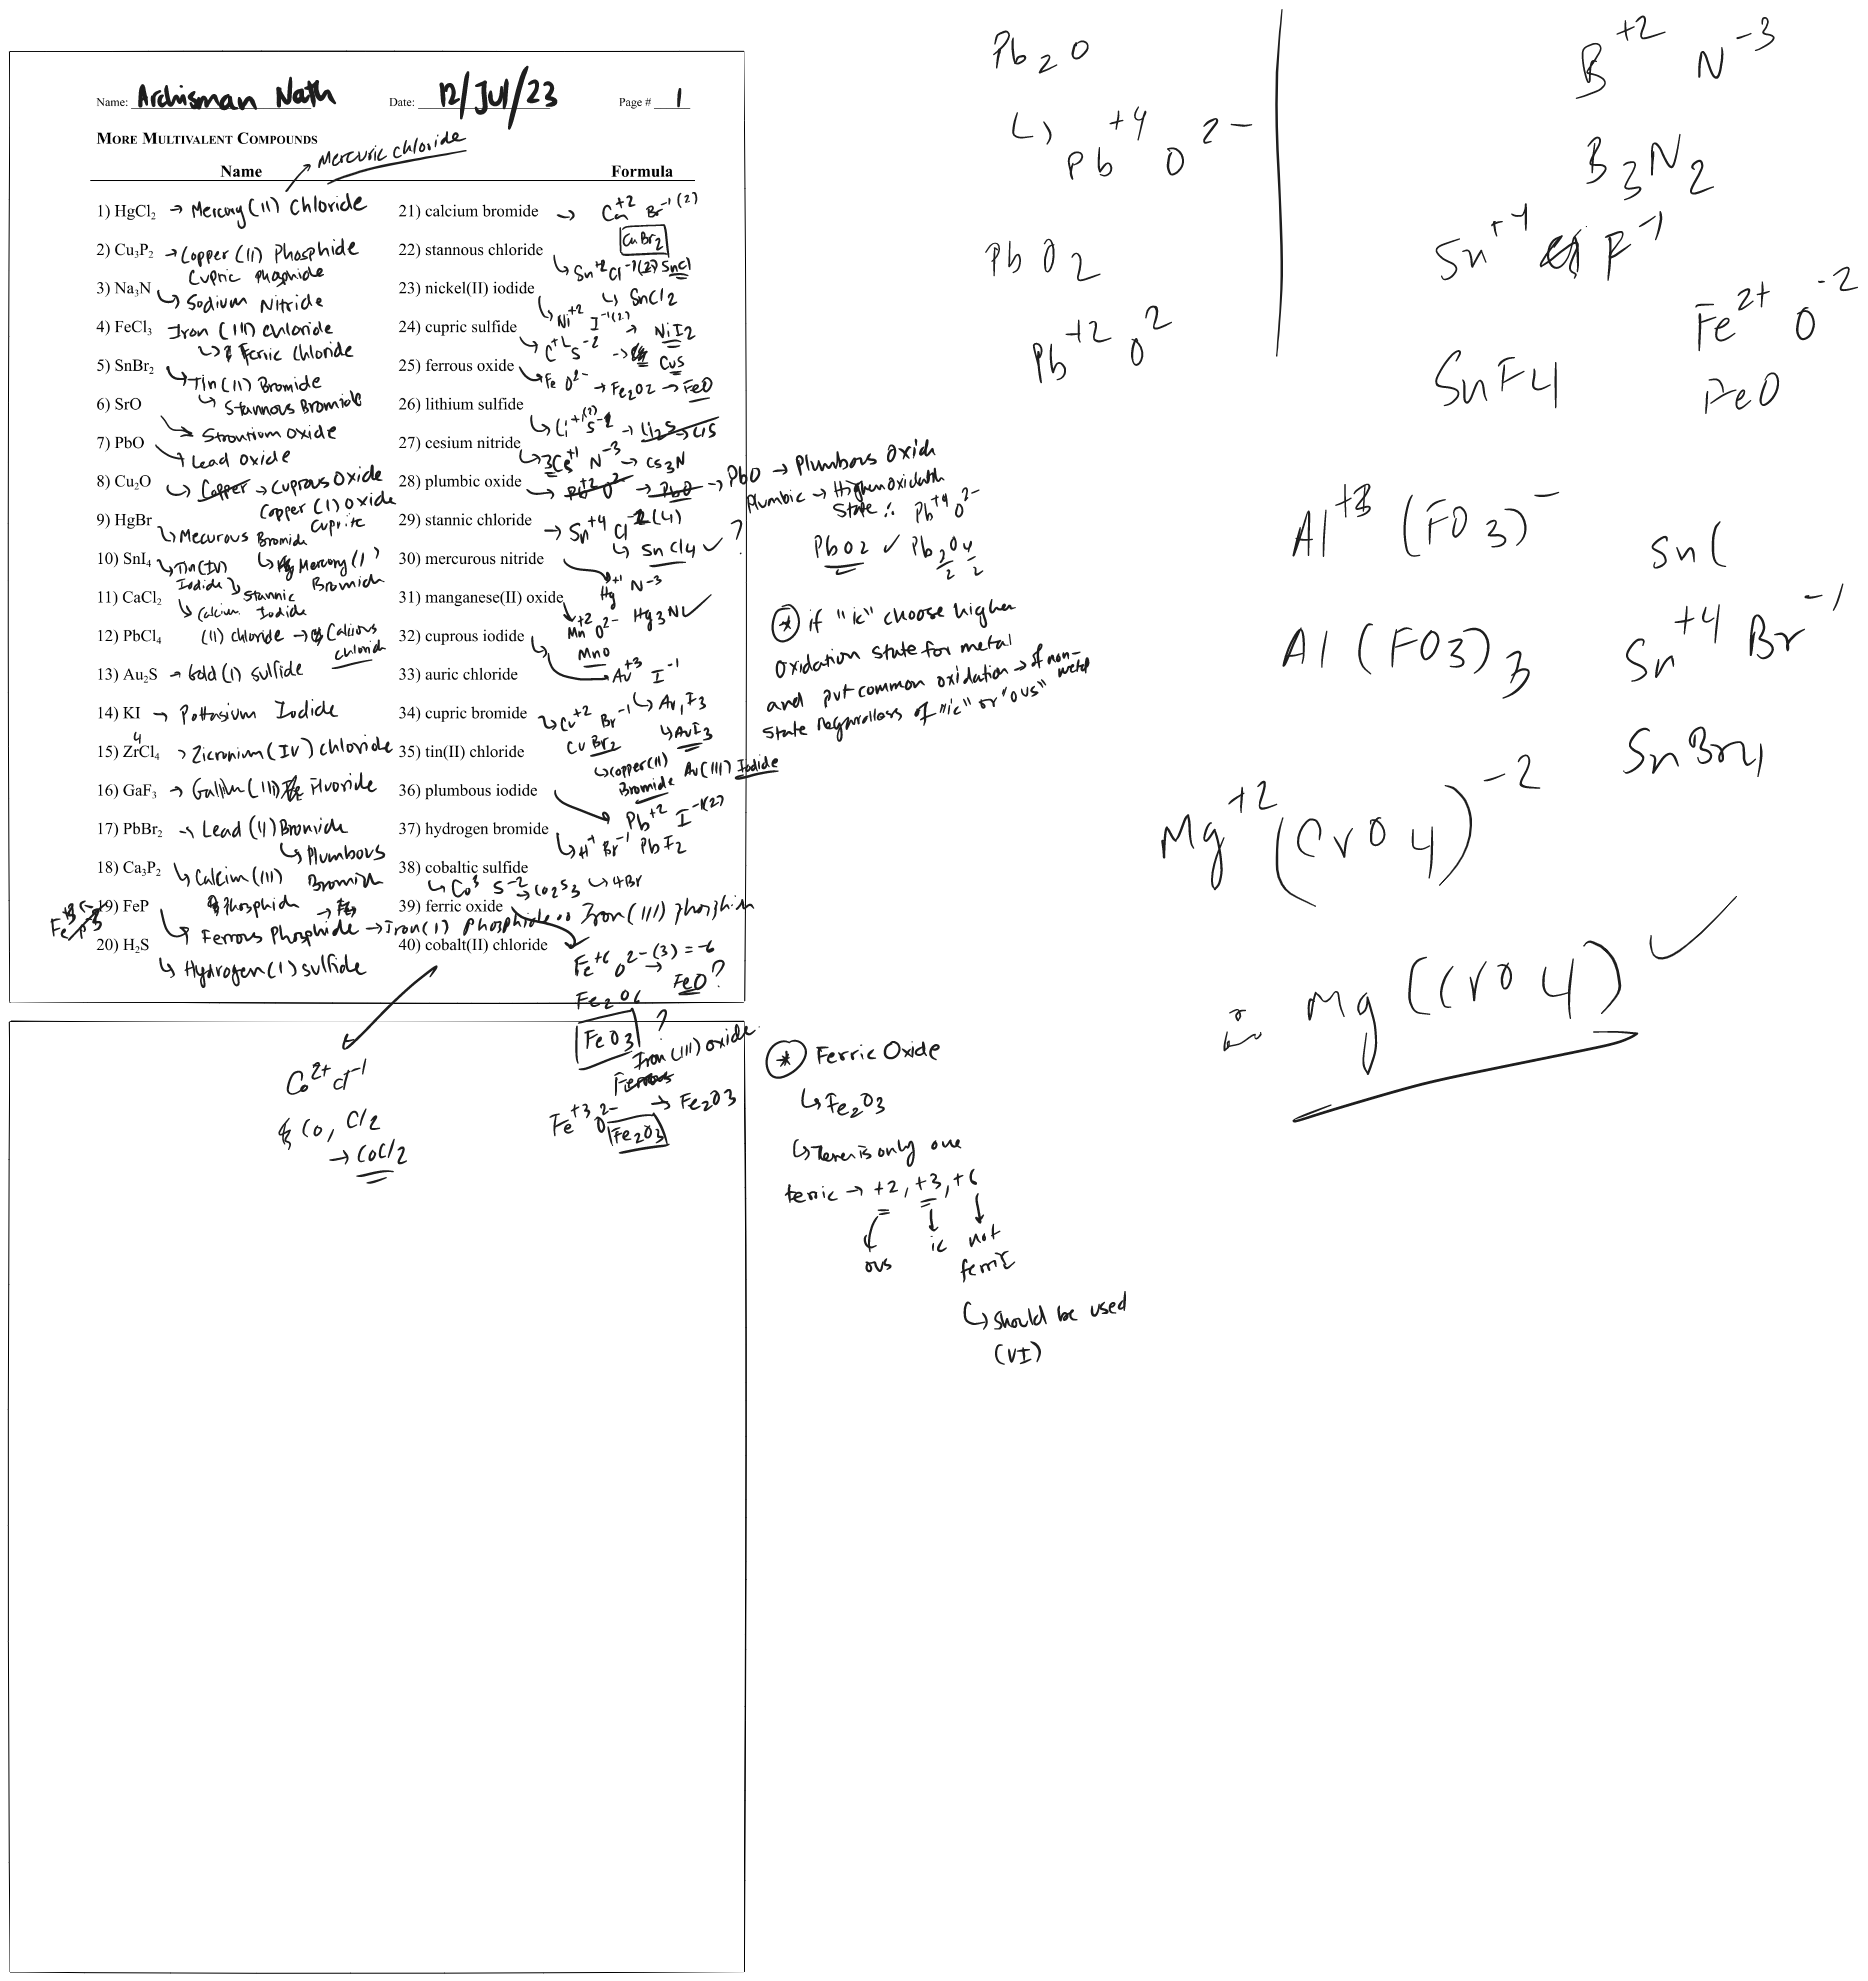 Name: Archisman Nath Date: 12/Jul/23 Page # 1
MORE MULTIVALENT COMPOUNDS
→ Mercuric chloride
Name Formula
1) HgCl₂ → Mercury (II) Chloride
2) Cu₃P₂ → Copper (II) Phosphide
Cupric Phosphide
3) Na₃N ↳ Sodium Nitride
4) FeCl₃ Iron (III) Chloride
↳ Ferric Chloride
5) SnBr₂ ↳ Tin (II) Bromide
↳ Stannous Bromide
6) SrO → Strontium Oxide
7) PbO ↳ Lead Oxide
8) Cu₂O ↳ Copper → Cuprous Oxide
Copper (I) Oxide
Cuprite
9) HgBr ↳ Mecurous Bromide
↳ Mercury (I)
Bromide
10) SnI₄ ↳ Tin (IV)
Iodide ↳ Stannic
Iodide
11) CaCl₂ ↳ Calcium
(II) chloride → Calcious
chloride
12) PbCl₄
13) Au₂S → Gold (I) sulfide
14) KI → Pottasium Iodide
15) ZrCl₄ 4 → Zicronium (IV) chloride
16) GaF₃ → Gallium (III) Fluoride
17) PbBr₂ → Lead (II) Bromide
↳ Plumbous
Bromide
18) Ca₃P₂ ↳ Calcium (III)
Phosphide
19) FeP ↳ Ferrous Phosphide → Iron (I) Phosphide or Iron (III) Phosphide
20) H₂S
↳ Hydrogen (I) sulfide
21) calcium bromide → Ca⁺² Br⁻¹(2)
CuBr₂
22) stannous chloride
↳ Sn⁺² Cl⁻¹(2) SnCl
↳ SnCl₂
23) nickel(II) iodide
↳ Ni⁺² I⁻¹(2) → NiI₂
24) cupric sulfide
↳ C⁺² S⁻² → CuS
25) ferrous oxide ↳ Fe O²⁻ → Fe₂O₂ → FeO
26) lithium sulfide
↳ Li⁺(2) S⁻² → Li₂S → LiS
27) cesium nitride
↳ 3Cs⁺¹ N⁻³ → Cs₃N
28) plumbic oxide → Pb⁺² O² → PbO → PbO → Plumbous Oxide
Plumbic → Higher oxidation
State ∴ Pb⁺⁴ O²⁻
PbO₂ ✓ Pb₂O₄
2 2
29) stannic chloride → Sn⁺⁴ Cl (4)
↳ SnCl₄ ✓ ?
30) mercurous nitride
Hg⁺¹ N⁻³
Hg₃N ✓
31) manganese(II) oxide
Mn⁺² O²⁻
MnO
32) cuprous iodide
→ Au⁺³ I⁻¹
↳ Au, I₃
↳ AuI₃
Au (III) Iodide
33) auric chloride
34) cupric bromide ↳ Cu⁺² Br⁻¹
CuBr₂
↳ Copper (II)
Bromide
35) tin(II) chloride
36) plumbous iodide
Pb⁺² I⁻¹(2)
PbI₂
37) hydrogen bromide
↳ H⁺ Br⁻¹
↳ HBr
38) cobaltic sulfide
↳ Co³ S⁻² → Co₂S₃
39) ferric oxide
Fe⁺⁶ O²⁻(3) = -6
→ FeO ?
Fe₂O₆
FeO₃ ?
Iron (III) oxide
Ferrous
Fe⁺³ O²⁻ → Fe₂O₃
Fe₂O₃
40) cobalt(II) chloride
Co²⁺ Cl⁻¹
Co, Cl₂
→ CoCl₂
* if "ic" choose higher
oxidation state for metal
and put common oxidation → of non-metal
state regardless of "ic" or "ous"
* Ferric Oxide
↳ Fe₂O₃
↳ There is only one
ferric → +2, +3, +6
ous ic not
ferric
↳ should be used
(VI)
Pb₂O
↳ Pb⁺⁴ O²⁻
PbO₂
Pb⁺² O²
B⁺² N⁻³
B₃N₂
Sn⁺⁴ F⁻¹
SnF4
Fe²⁺ O⁻²
FeO
Al⁺³ (FO3)⁻
Al(FO3)₃
Sn(
Sn⁺⁴ Br⁻¹
SnBr4
Mg⁺² (CrO4)⁻²
∴ Mg(CrO4) ✓